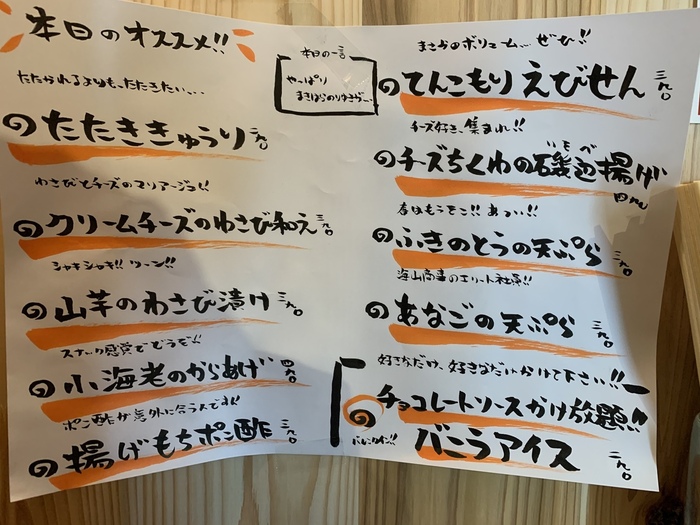 本日のオススメ!!
たたかれるよりも、たたきたい、、、
たたききゅうり 三九〇
わさびとチーズのマリアージュ!!
クリームチーズのわさび和え 三九〇
シャキシャキ!! ツーン!!
山芋のわさび漬け 三九〇
スナック感覚でどうぞ!!
小海老のからあげ 四九〇
ポン酢が意外に合うんです!!
揚げもちポン酢 三九〇
本日の一言
やっぱり
まきばらのりゆきっ、、
まさかのボリューム、、ぜひ!!
てんこもりえびせん 三九〇
チーズ好き、集まれ!!
チーズちくわの磯辺揚げ 四九〇
イソベ
春はもうそこ!! あぁい!!
ふきのとうの天ぷら 三九〇
海山商事のエリート社員!!
あなごの天ぷら 三九〇
好きなだけ、好きなだけかけて下さい!!
チョコレートソースかけ放題!!
バレンタイン!!
バニラアイス 二九〇